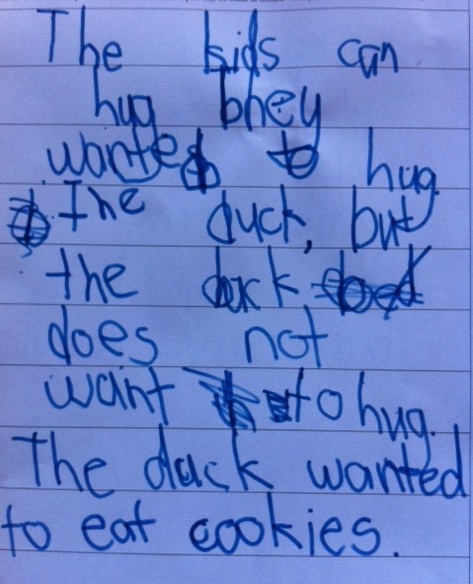 The kids can
hug they
wanted to hug
the duck, but
the duck
does not
want to hug.
The duck wanted
to eat cookies.